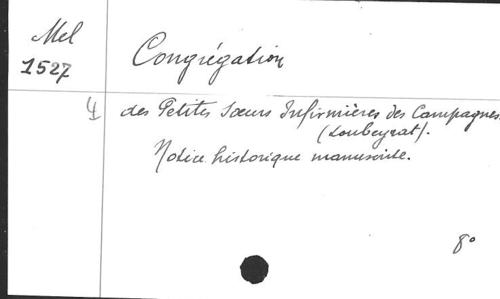 Mel
1527
4
Congrégation
des Petites Sœurs Infirmières des Campagnes.
(Loubeyrat).
Notice historique manuscrite.
8°